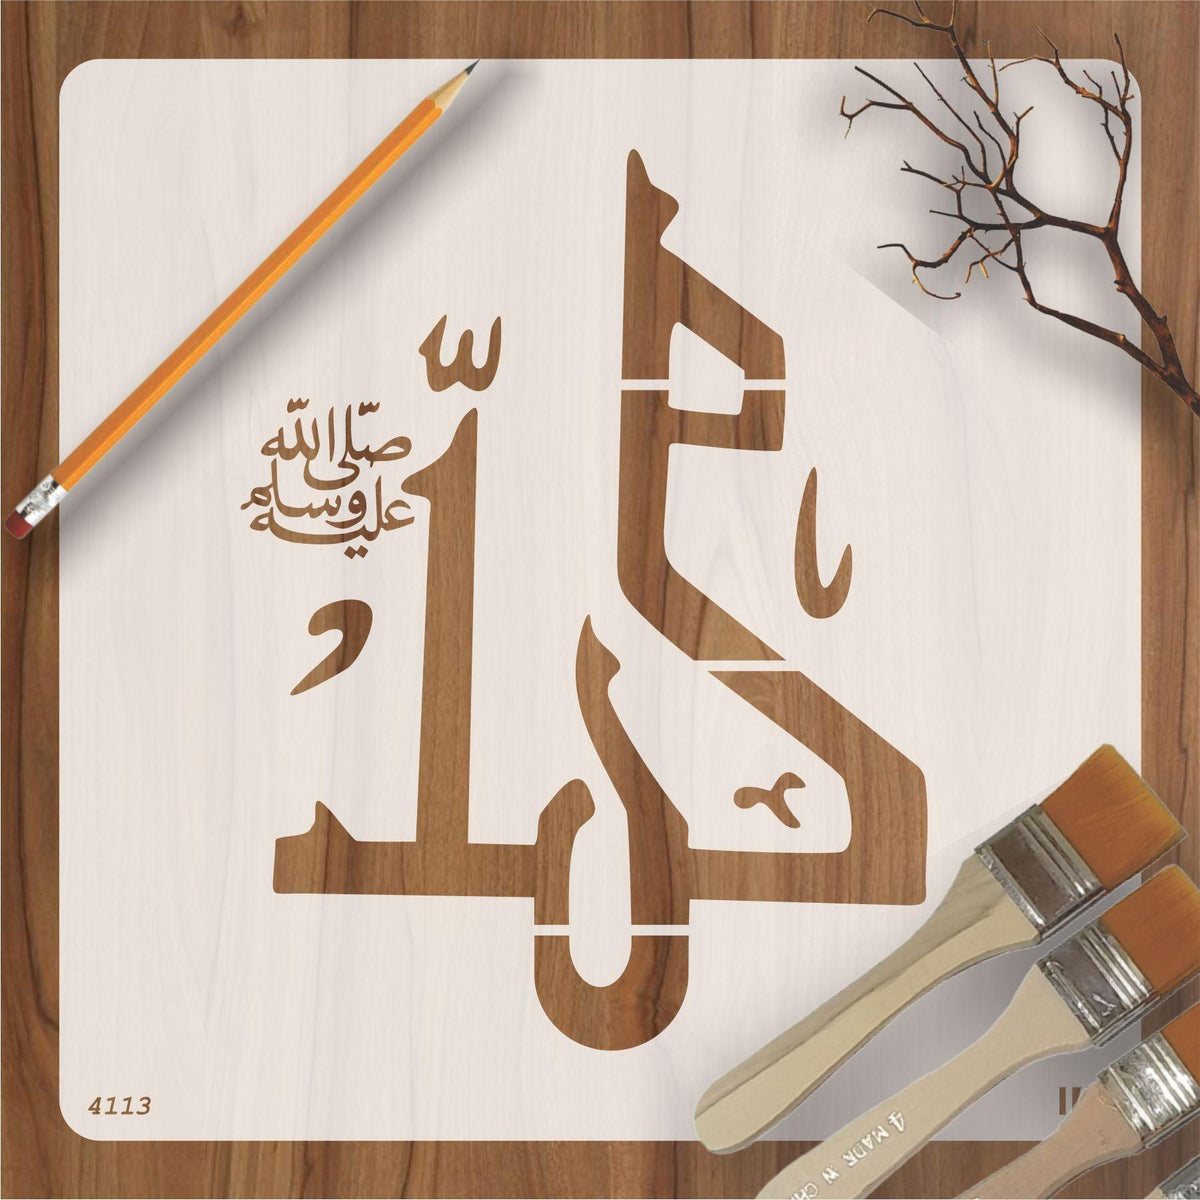 محمد
صلى الله
عليه وسلم
4113
4 MADE IN CHI